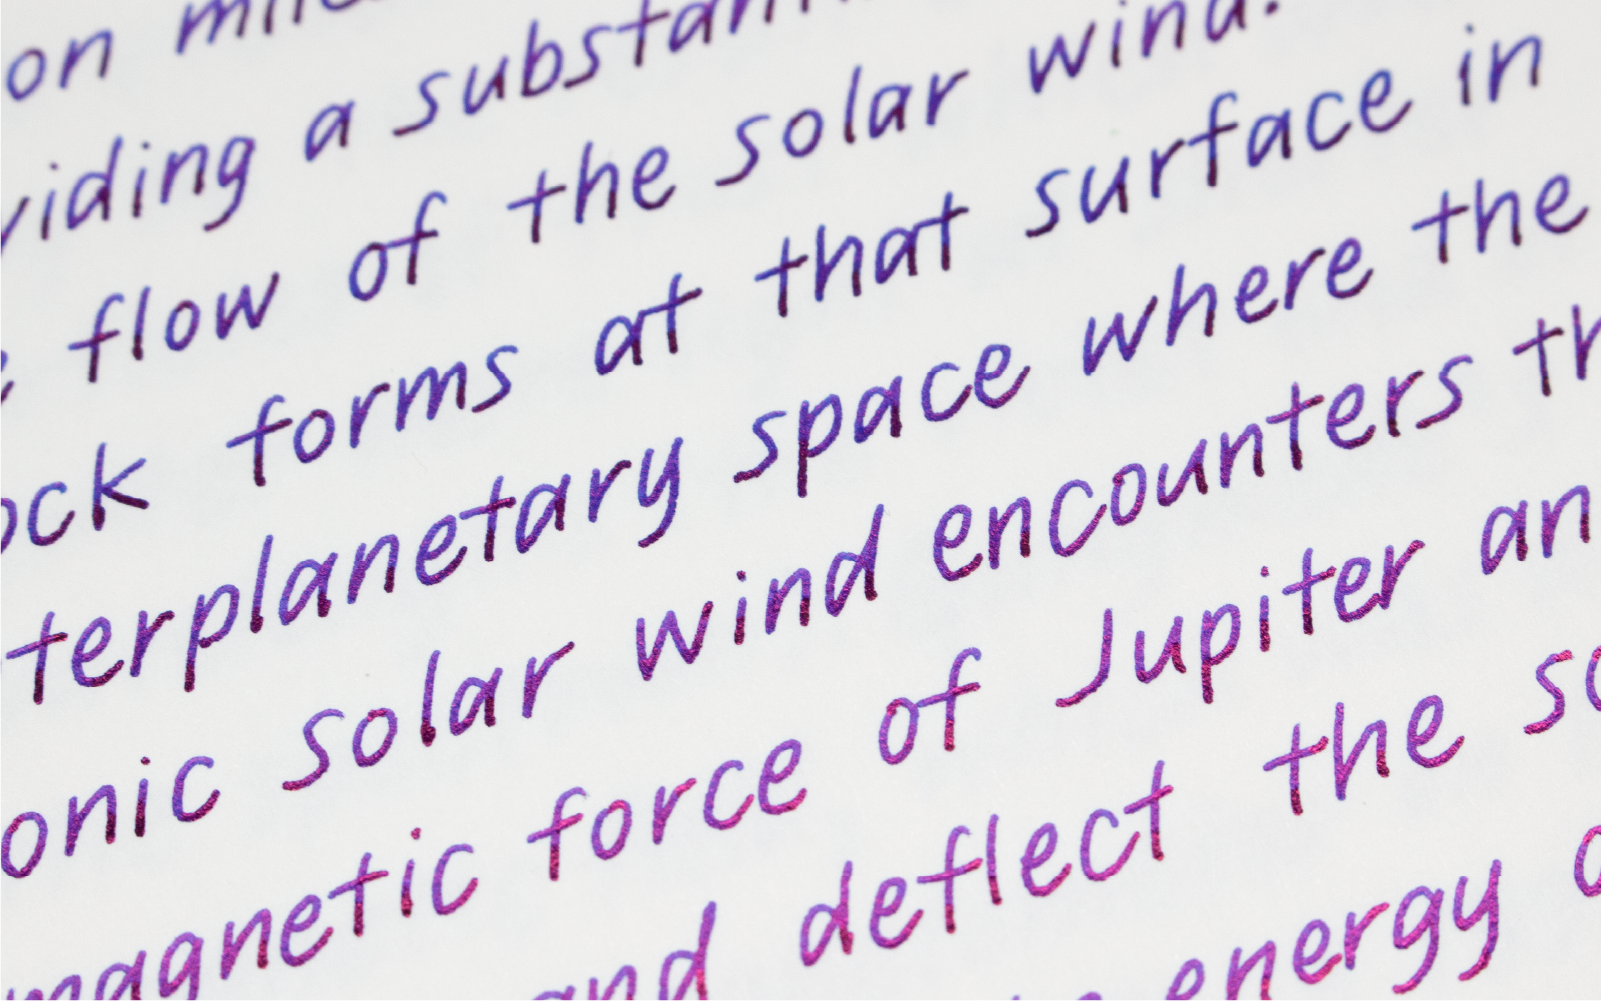 on
iding a substan
flow of the solar wind.
ock forms at that surface in
terplanetary space where the
onic solar wind encounters th
magnetic force of Jupiter an
and deflect the so
energy